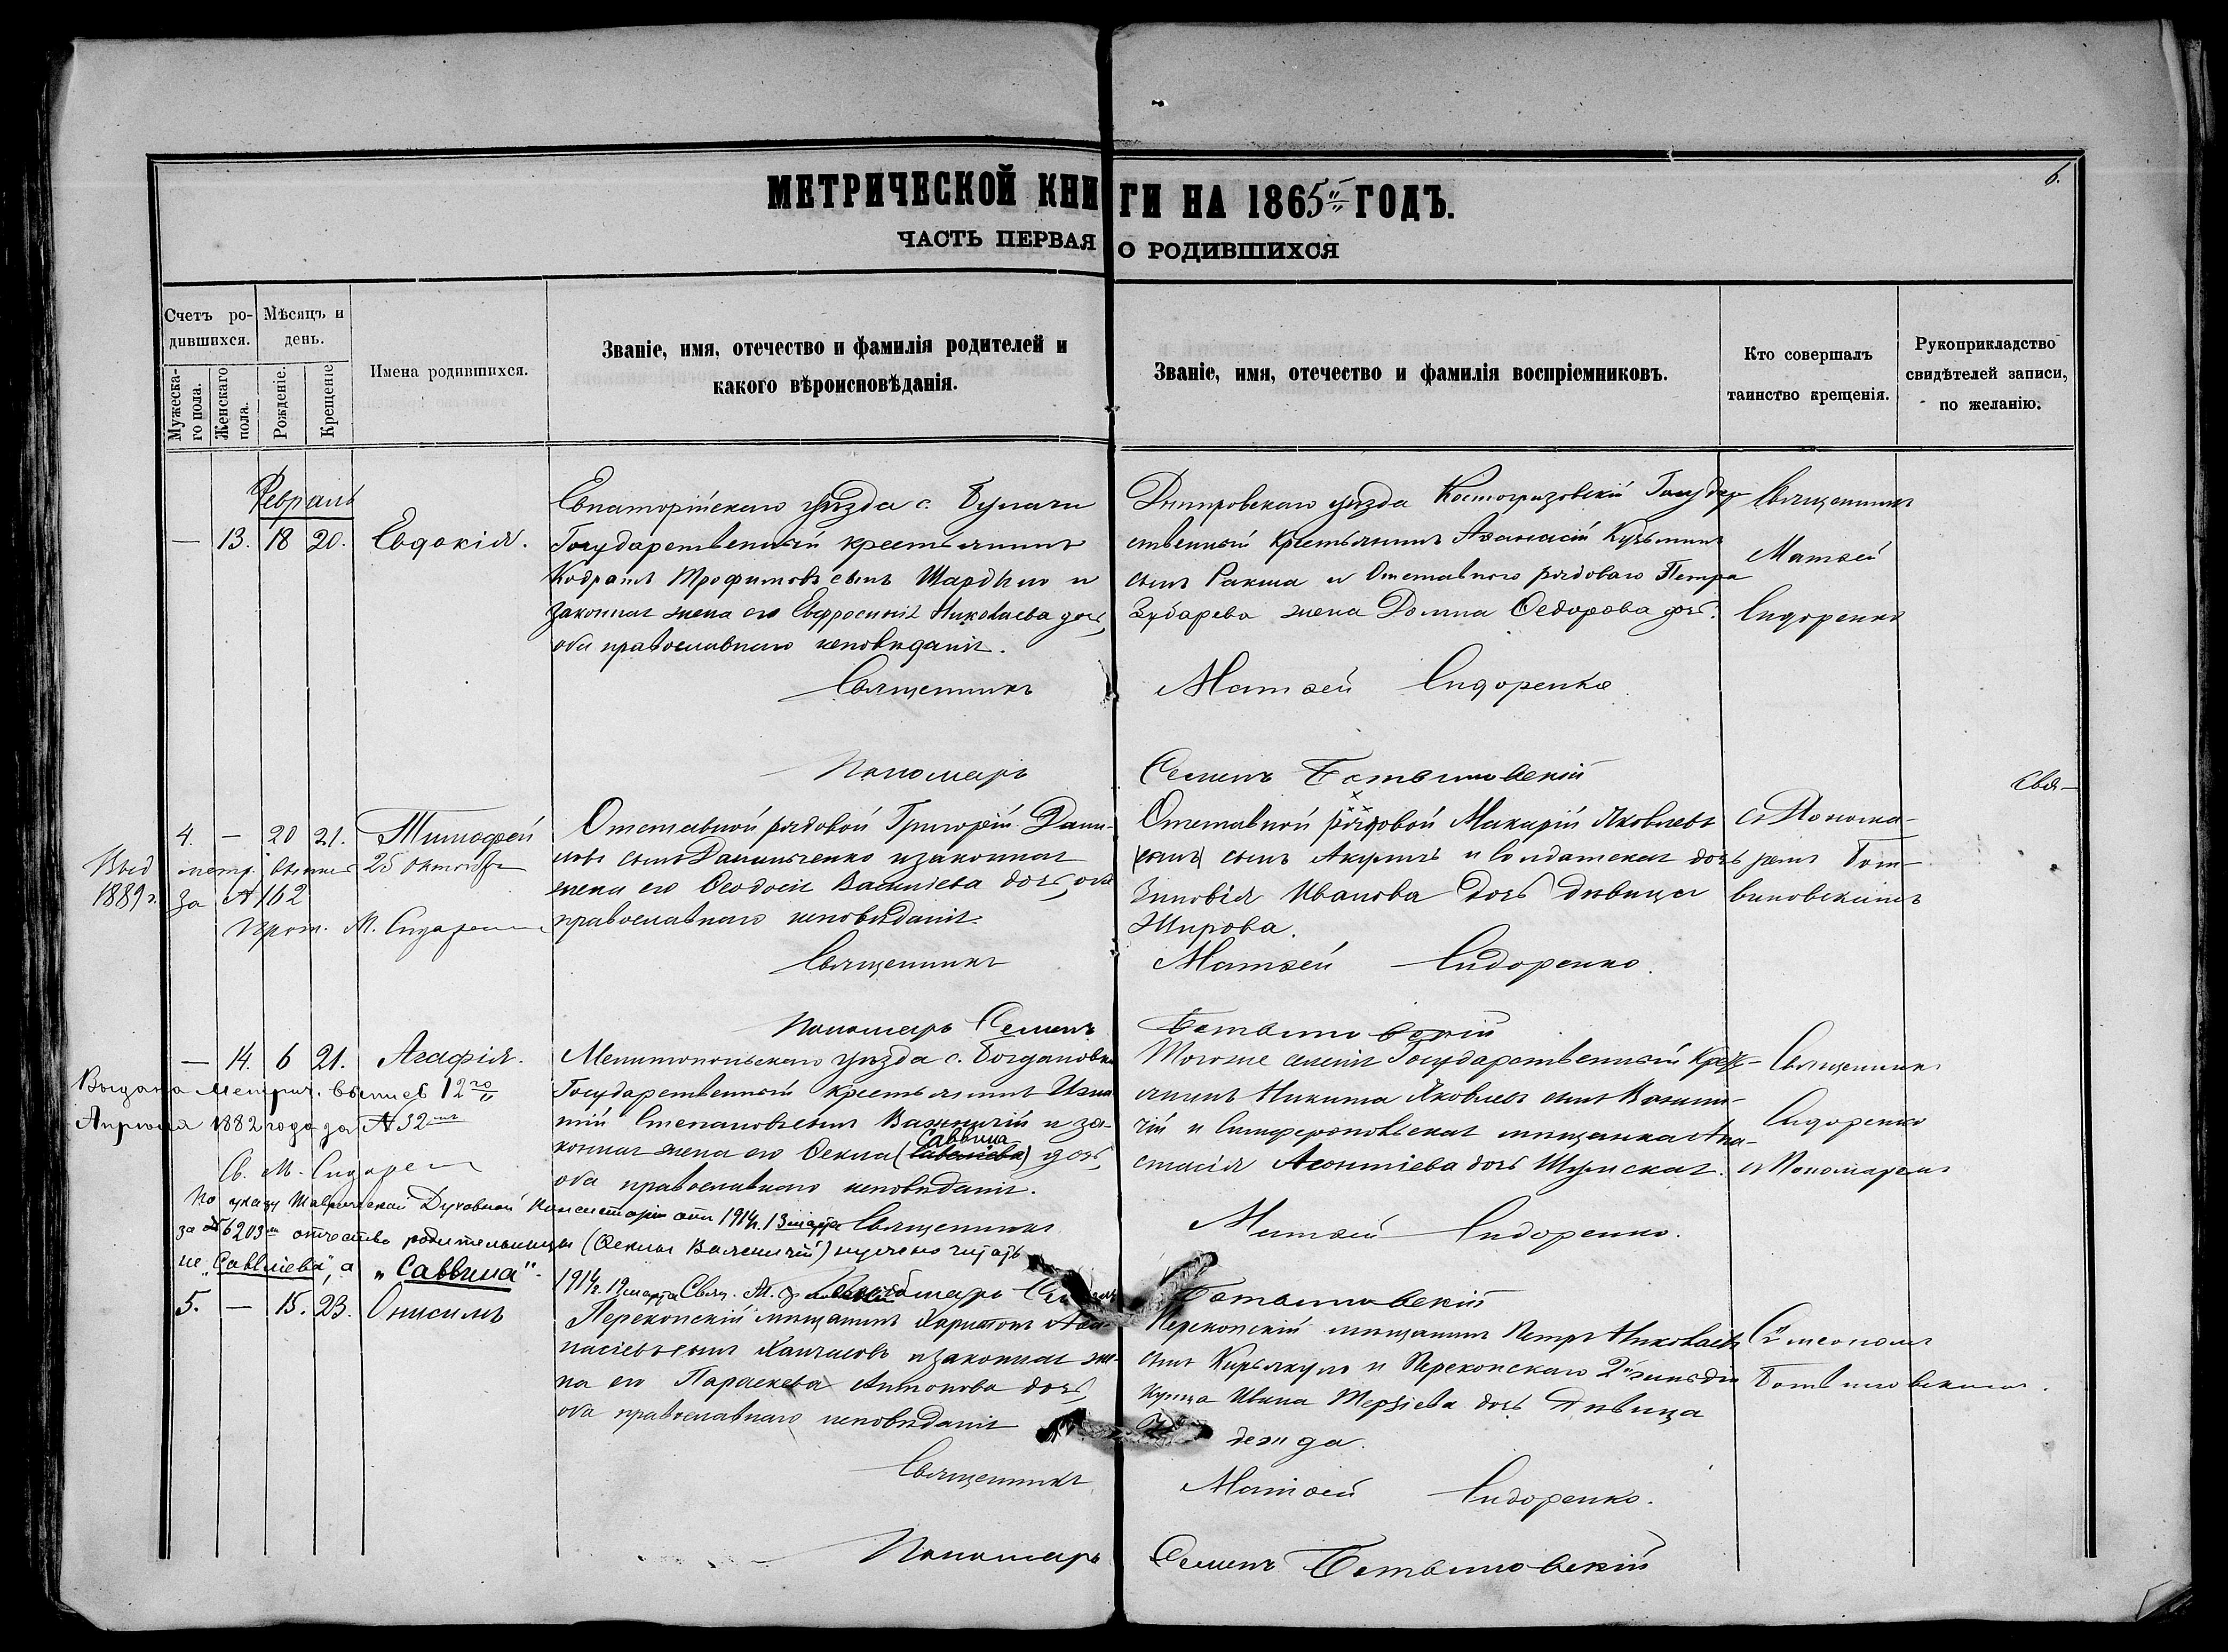 6.
МЕТРИЧЕСКОЙ КНИГИ НА 1865й ГОДЪ.
ЧАСТЬ ПЕРВАЯ О РОДИВШИХСЯ
Счетъ родившихся.
Мужескаго пола.
Женскаго пола.
Мѣсяцъ и день.
Рожденіе.
Крещеніе
Имена родившихся.
Званіе, имя, отечество и фамилія родителей и
какого вѣроисповѣданія.
Званіе, имя, отечество и фамилія воспріемниковъ.
Кто совершалъ
таинство крещенія.
Рукоприкладство
свидѣтелей записи,
по желанію.
Февраль
— 13. 18 20. Евдокія.
Евпаторійскаго уѣзда с.
Государственный крестьянинъ
Кодратъ Трофимовъ сынъ и
законная жена его Евфросинія Николаева дочь,
оба православнаго исповѣданія.
Днѣпровскаго уѣзда Костогризовскій Государ-
ственный Крестьянинъ Аѳанасій Кузьминъ
сынъ Ракша и Отставного рядоваго Петра
Зубарева жена Домна Ѳедорова дочь.
Священникъ
Матѳей
Сидоренко
Священникъ Матѳей Сидоренко.
Пономарь Семенъ Ботвиновскій
Свя-
4. — 20 21. Тимофей
Отставной рядовой Григорій Дани-
ловъ сынъ Данильченко и законная
жена его Ѳеодосія Васильева дочь, оба
православнаго исповѣданія.
Отставной рядовой Макарій Яковлевъ
(сынъ) сынъ и солдатская дочь
Зиновія Иванова дочь дѣвица
Жирова.
съ Понома-
ремъ Бот-
виновскимъ
Выд метр. выпись 25 Октября
1889 г. За № 162
Прот. М. Сидоренко
Священникъ Матѳей Сидоренко.
Пономарь Семенъ Ботвиновскій
— 14. 6 21. Агафія.
Мелитопольскаго уѣзда с. Богдановки
Государственный крестьянинъ Игна-
тій Степановъ сынъ и за-
конная жена его Ѳекла (Савелиева) Саввина дочь,
оба православнаго исповѣданія.
Тогоже селенія Государственный Кресть-
янинъ Никита Яковлевъ сынъ
и Симферопольская мѣщанка Ана-
стасія Леонтіева дочь Шумская.
Священникъ
Сидоренко
съ Пономаремъ
Выдана Метрич. выпись 12го
Апрѣля 1882 года за № 32мъ
Св. М. Сидоренко
По указу Таврической Духовной Консисторіи отъ 1914 г. 13 марта
за № 6203 отчество родительницы (Ѳеклы) нужно читать
не „Савелиева", а „Саввина".
1914 г. 19 марта Свящ.
Священникъ Матѳей Сидоренко.
Пономарь Семенъ Ботвиновскій
5. — 15. 23. Онисимъ
Перекопскій мѣщанинъ Харитонъ Аѳа-
насіевъ сынъ и законная же-
на его Параскева Антонова дочь,
оба православнаго исповѣданія
Перекопскій мѣщанинъ Петръ Николаевъ
сынъ и Перекопскаго 2й гильдіи
купца Ивана Терзіева дочь дѣвица
дежда.
Съ
Ботвиновскимъ.
Священникъ Матѳей Сидоренко.
Пономарь Семенъ Ботвиновскій